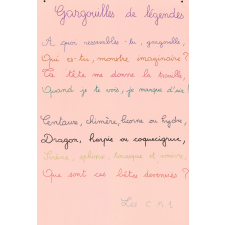 Gargouilles de légendes
A quoi ressembles-tu, gargouille,
Qui es-tu, monstre imaginaire ?
Ta tête me donne la trouille,
Quand je te vois, je manque d'air !
Centaure, chimère, licorne ou hydre,
Dragon, harpie ou coquecigrue,
Sirène, sphinx, et
Que sont ces bêtes devenues ?
Les C M 1